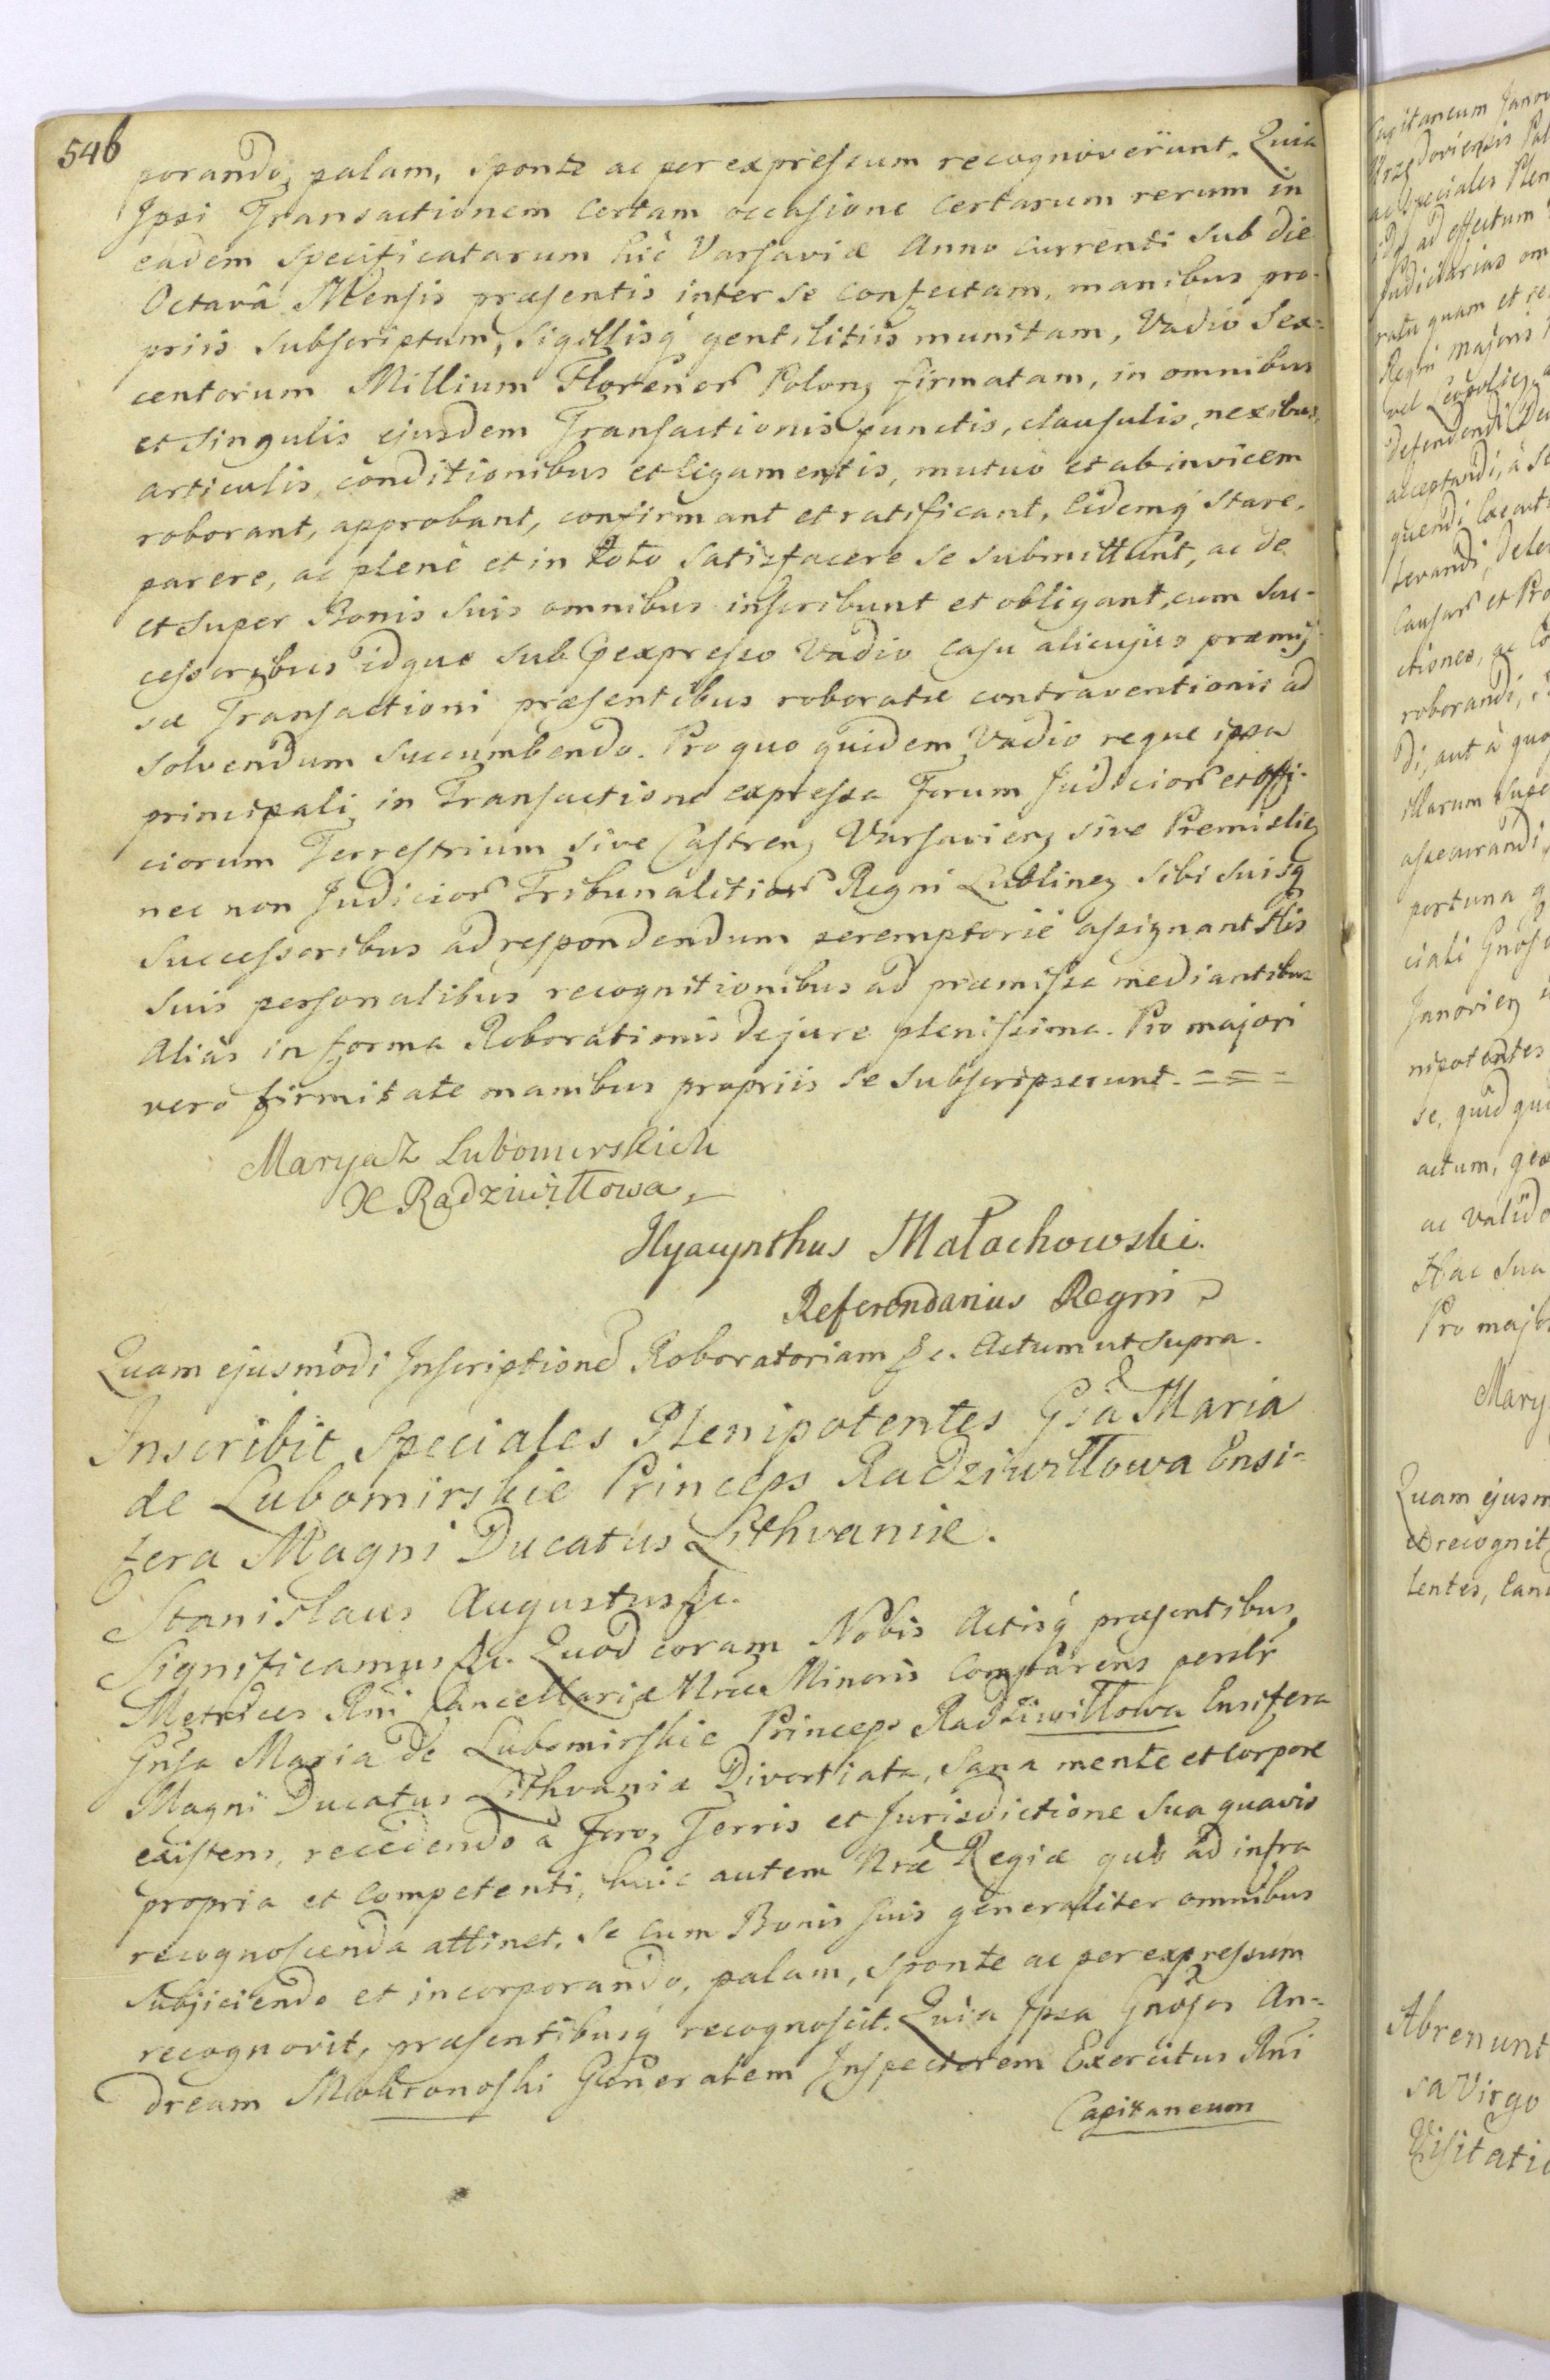 546
porando, palam, sponte ac per expressum recognoverunt. Quia
Ipsi Transactionem certam occasione certarum rerum in
eadem specificatarum hic Varsaviæ Anno currenti sub die
Octavâ Mensis præsentis inter se confectam, manibus pro-
priis subscriptam, sigillisq gentilitiis munitam, Vadio Sex=
centorum Millium Florenor Polonz firmatam, in omnibus
et singulis ejusdem Transactionis punctis, clausulis, nexibus,
articulis, conditionibus et ligamentis, mutuo et abinvicem
roborant, approbant, confirmant et ratificant, Eidemq stare,
parere, ac plenè et in toto satisfacere se submittunt, ac de
et super Bonis suis omnibus inscribunt et obligant, cum suc-
cessoribus idque sub expresso Vadio casu alicujus præmis-
sæ Transactioni præsentibus roboratæ contraventionis ad
solvendum succumbendo. Pro quo quidem Vadio reque ipsa
principali in Transactione expressa Forum Judicior et Offi-
ciorum Terrestrium sive Castrenz Varsavienz sive Premisliez
nec non Judicior Tribunalitior Regni Lublinez sibi suisq
Successoribus ad respondendum peremptorie assignant His
suis personalibus recognitionibus ad præmissa mediantibus
Alias in forma Roborationis de jure plenissima. Pro majori
verò firmitate manibus propriis se subscripserunt. = = =
Marya Z Lubomirskich
X Radziwiłłowa
Hyacynthus Małachowski.
Referendarius Regni
Quam ejusmodi Inscriptione Roboratoriam &c. Actum ut supra.
Inscribit Speciales Plenipotentes Gsa Maria
de Lubomirskie Princeps Radziwiłłowa Ensi-
fera Magni Ducatus Lithvaniæ.
Stanislaus Augustus &c.
Significamus &c. Quod coram Nobis Actisq præsentibus
Metrices Rni Cancellariæ Nræ Minoris Comparens persltr
Gnsa Maria de Lubomirskie Princeps Radziwiłłowa Ensifera
Magni Ducatus Lithvaniæ Divortiata, sana mente et corpore
existens, recedendo à Foro, Terris et Jurisdictione sua quavis
propria et competenti, huic autem Nræ Regiæ quò ad infra
recognoscenda attinet, se cum Bonis suis generaliter omnibus
subjiciendo et incorporando, palam, sponte ac per expressum
recognovit, præsentibusq recognoscit. Quia Ipsa Gnosos An=
dream Mokronoski Generalem Inspectorem Exercitus Rni
Capitaneum
Capitaneum
ad effectum
Judiciarias
ratu quam et
Regni majoris
defendendi
acceptandi, à
quendi
levandi,
Causar et
ctiones, ac
roborandi,
di, aut à quo
illarum
portuna
ciali
Janovienz
nipotentes
se, quid
actum,
ac valido
Hac sua
Pro major
Mary
Quam ejusm
et recognit
tentes,
Abrenunt
sa Virgo
Visitatio